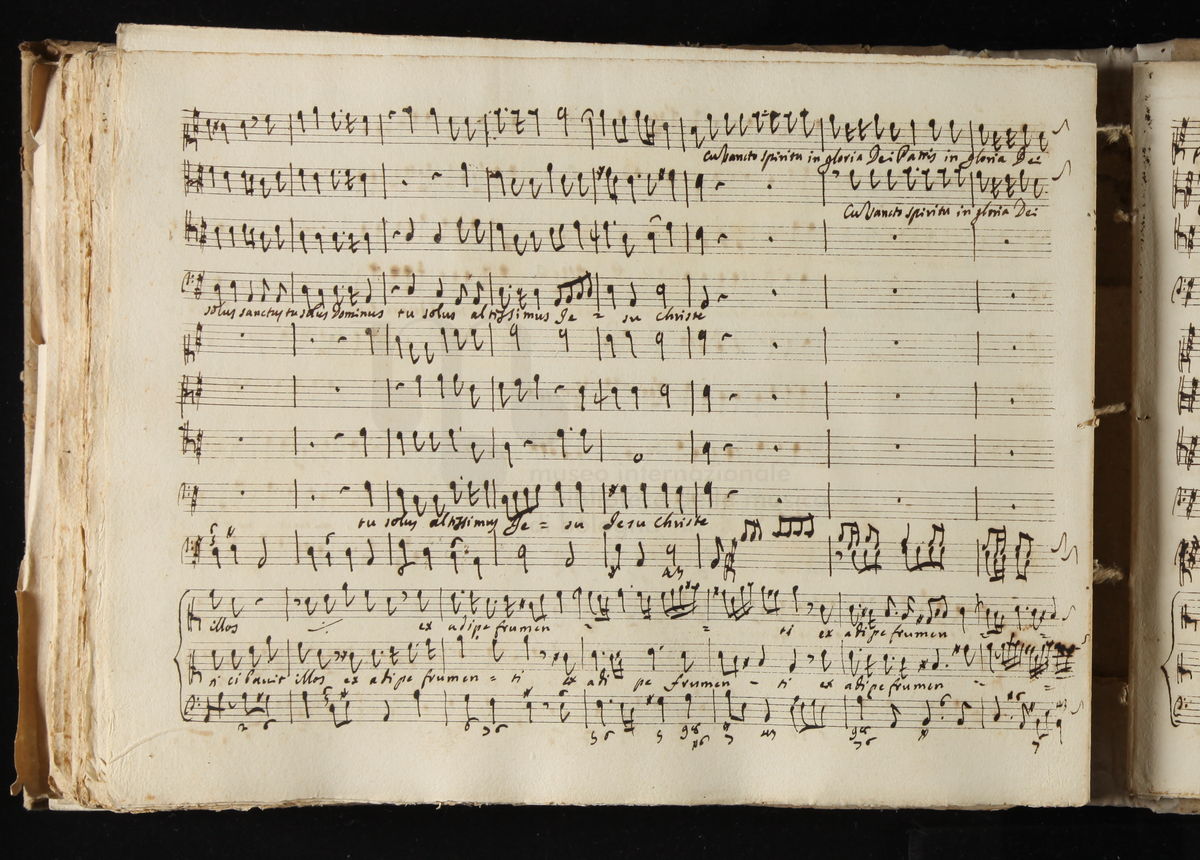 Cu Sancto Spiritu in gloria Dei Patris in gloria Dei
Cu Sancto Spiritu in gloria Dei
solus sanctus tu solus Dominus tu solus altissimus Je = su Christe
museo internazionale
tu solus altissimus Je = su Jesu Christe
illos ex adipe frumen = ti ex adipe frumen
ti cibavit illos ex adipe frumen = ti ex adi pe frumen - ti ex adipe frumen